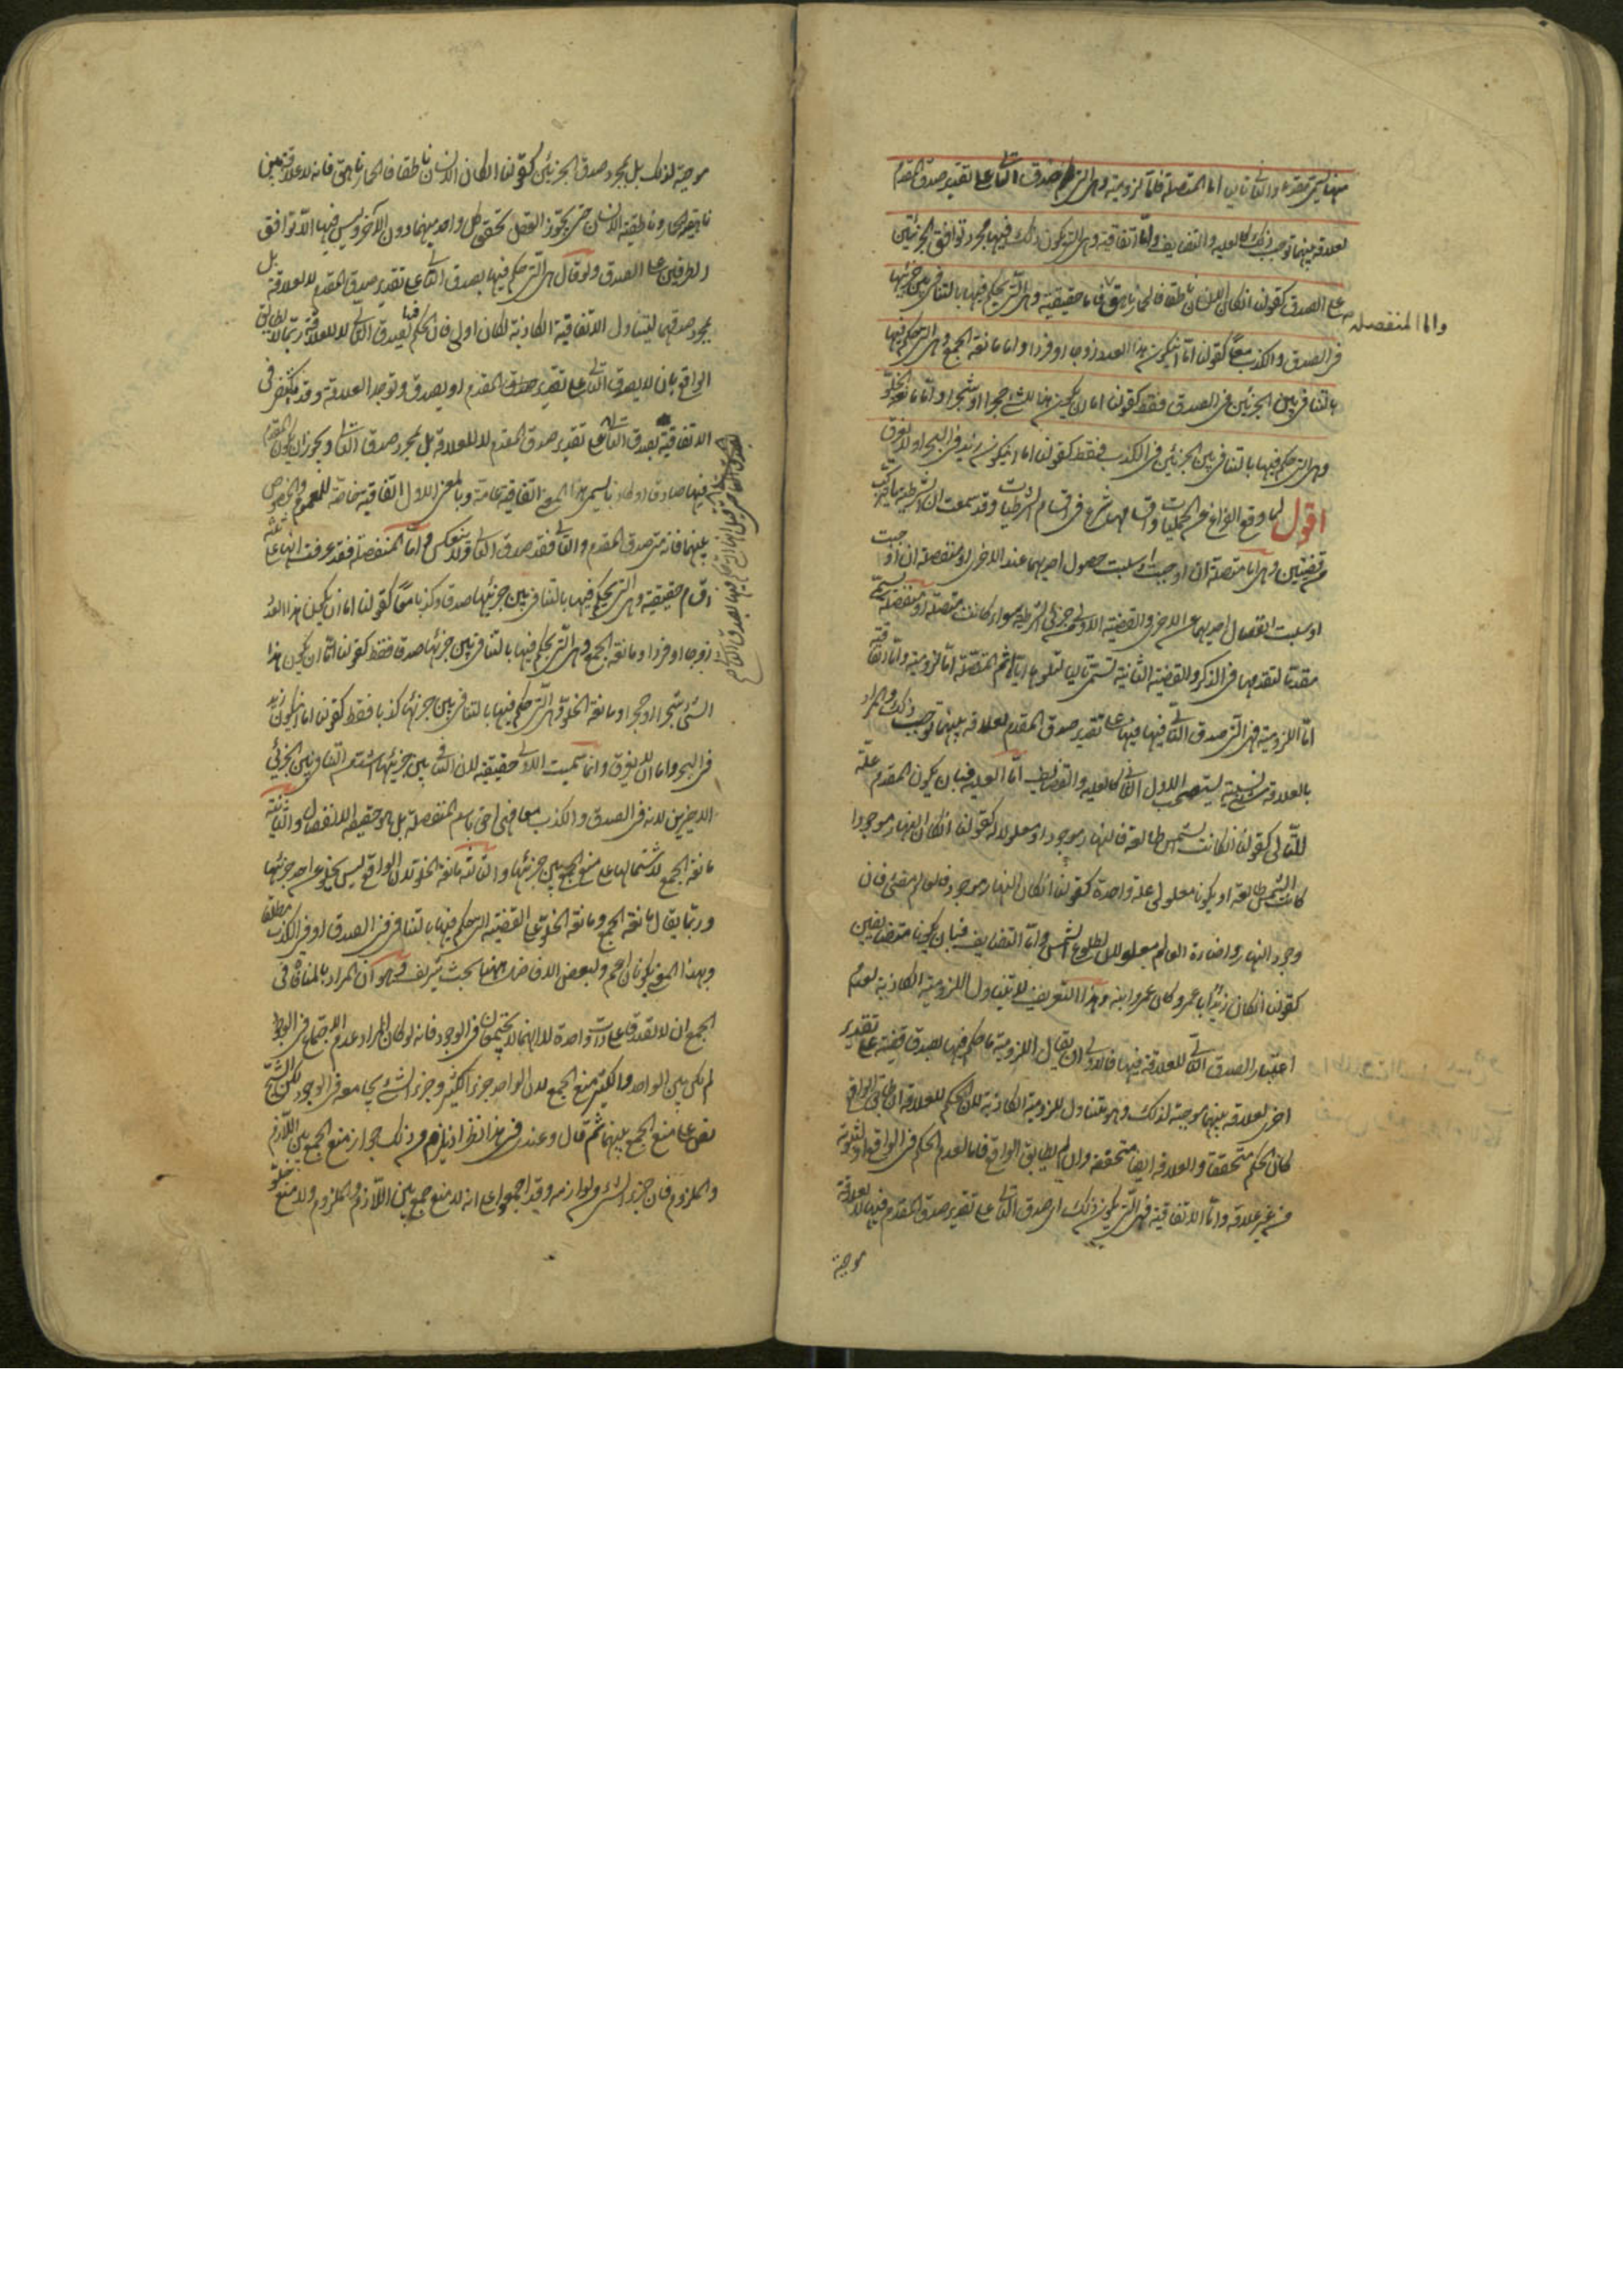 منهما يسمى مقدما والثاني تاليا اما المتصلة فاما لزومية وهي التي صدق التالي على تقدير صدق المقدم
لعلاقة بينهما توجب ذلك كالعلية والتضايف واما اتفاقية وهي التي يكون ذلك فيها بمجرد توافق الجزئين
على الصدق كقولنا ان كان الانسان ناطقا فالحمار ناهق فاما حقيقية وهي التي يحكم فيها بالتنافي بين جزئيها
واما المنفصلة
في الصدق والكذب معا كقولنا اما ان يكون هذا العدد زوجا او فردا واما مانعة الجمع وهي التي حكم فيها
بالتنافي بين الجزئين في الصدق فقط كقولنا اما ان يكون هذا الشيء حجرا او شجرا واما مانعة الخلو
وهي التي حكم فيها بالتنافي بين الجزئين في الكذب فقط كقولنا اما ان يكون زيد في البحر او لا يغرق
اقول لما وقع الفراغ عن الحمليات واقسامها شرع في اقسام الشرطيات وقد سمعت ان الشرطية ما تركبت
من قضيتين وهي اما متصلة ان اوجبت او سلبت حصول احديهما عند الاخرى او منفصلة ان اوجبت
او سلبت انفصال احديهما عن الاخرى والقضية الاولى من جزئي الشرطية سواء كانت متصلة او منفصلة تسمى
مقدما لتقدمها في الذكر والقضية الثانية تسمى تاليا لتلوها اياه ثم المتصلة اما لزومية واما اتفاقية
اما اللزومية فهي التي صدق التالي فيها على تقدير صدق المقدم لعلاقة بينهما توجب ذلك والمراد
بالعلاقة شيء بسببه يستصحب الاول الثاني كالعلية والتضايف اما العلية فبان يكون المقدم علة
للتالي كقولنا ان كانت الشمس طالعة فالنهار موجود او معلولا له كقولنا ان كان النهار موجودا
كانت الشمس طالعة او يكونا معلولي علة واحدة كقولنا ان كان النهار موجودا فالعالم مضيء فان
وجود النهار واضاءة العالم معلولان لطلوع الشمس واما التضايف فبان يكونا متضايفين
كقولنا ان كان زيد ابا عمرو كان عمرو ابنه وهذا التعريف لا يتناول اللزومية الكاذبة لعدم
اعتبار الصدق التالي للعلاقة فيها فالاولى ان يقال اللزومية ما حكم فيها بصدق قضية على تقدير
اخرى لعلاقة بينهما موجبة لذلك وهو يتناول اللزومية الكاذبة لان الحكم للعلاقة ان طابق الواقع
كان الحكم متحققا والعلاقة ايضا متحققة وان لم يطابق الواقع فاما لعدم الحكم في الواقع او لثبوته
من غير علاقة واما الاتفاقية فهي التي يكون ذلك اي صدق التالي على تقدير صدق المقدم فيها لا لعلاقة
موجبة
موجبة لذلك بل بمجرد صدق الجزئين كقولنا ان كان الانسان ناطقا فالحمار ناهق فانه لا علاقة بين
ناهقية الحمار وناطقية الانسان حتى يجوز العقل تحقق كل واحد منهما دون الآخر وليس فيها الا توافق
الطرفين على الصدق ولو قال هي التي حكم فيها بصدق التالي على تقدير صدق المقدم لا لعلاقة بل
بمجرد صدقهما ليتناول الاتفاقية الكاذبة لكان اولى فان الحكم فيها بصدق التالي لا للعلاقة ربما لا يطابق
الواقع بان لا يصدق التالي على تقدير صدق المقدم او يصدق وتوجد العلاقة وقد يكتفى في
الاتفاقية بصدق التالي على تقدير صدق المقدم لا للعلاقة بل بمجرد صدق التالي ويجوز ان يكون المقدم
فيها صادقا او كاذبا ويسمى بهذا المعنى اتفاقية عامة وبالمعنى الاول اتفاقية خاصة للعموم والخصوص
بينهما فانه متى صدق المقدم والتالي فقد صدق التالي ولا ينعكس واما المنفصلة فقد عرفت انها على ثلثة
اقسام حقيقية وهي التي يحكم فيها بالتنافي بين جزئيها صدقا وكذبا معا كقولنا اما ان يكون هذا العدد
زوجا او فردا ومانعة الجمع وهي التي يحكم فيها بالتنافي بين جزئيها صدقا فقط كقولنا اما ان يكون هذا
الشيء شجرا او حجرا ومانعة الخلو وهي التي حكم فيها بالتنافي بين جزئيها كذبا فقط كقولنا اما ان يكون زيد
في البحر واما ان لا يغرق وانما سميت الاولى حقيقية لان التنافي بين جزئيها اشد من التنافي بين جزئي
الاخيرين لانه في الصدق والكذب معا فهي احق باسم المنفصلة بل هو حقيقة الانفصال والثانية
مانعة الجمع لاشتمالها على منع الجمع بين جزئيها والثالثة مانعة الخلو لان الواقع ليس يخلو عن احد جزئيها
وربما يقال مانعة الجمع ومانعة الخلو على القضية التي حكم فيها بالتنافي في الصدق او في الكذب مطلقا
وبهذا المعنى يكونان اعم ولبعض الافاضل ههنا بحث شريف وهو ان المراد بالمنافاة في
الجمع ان لا يصدقا على ذات واحدة لا انهما لا يجتمعان في الوجود فانه لو كان المراد عدم الاجتماع في الوجود
لم يكن بين الواحد والكثير منع الجمع لان الواحد جزء الكثير وجزء الشيء يجامعه في الوجود لكن الشيخ
نص على منع الجمع بينهما ثم قال وعندي في هذا نظر اذ يلزم من ذلك جواز منع الجمع بين اللازم
والملزوم فان جزء الشيء من لوازمه وقد اجمعوا على انه لا منع جمع بين اللازم والملزوم ولا منع خلو